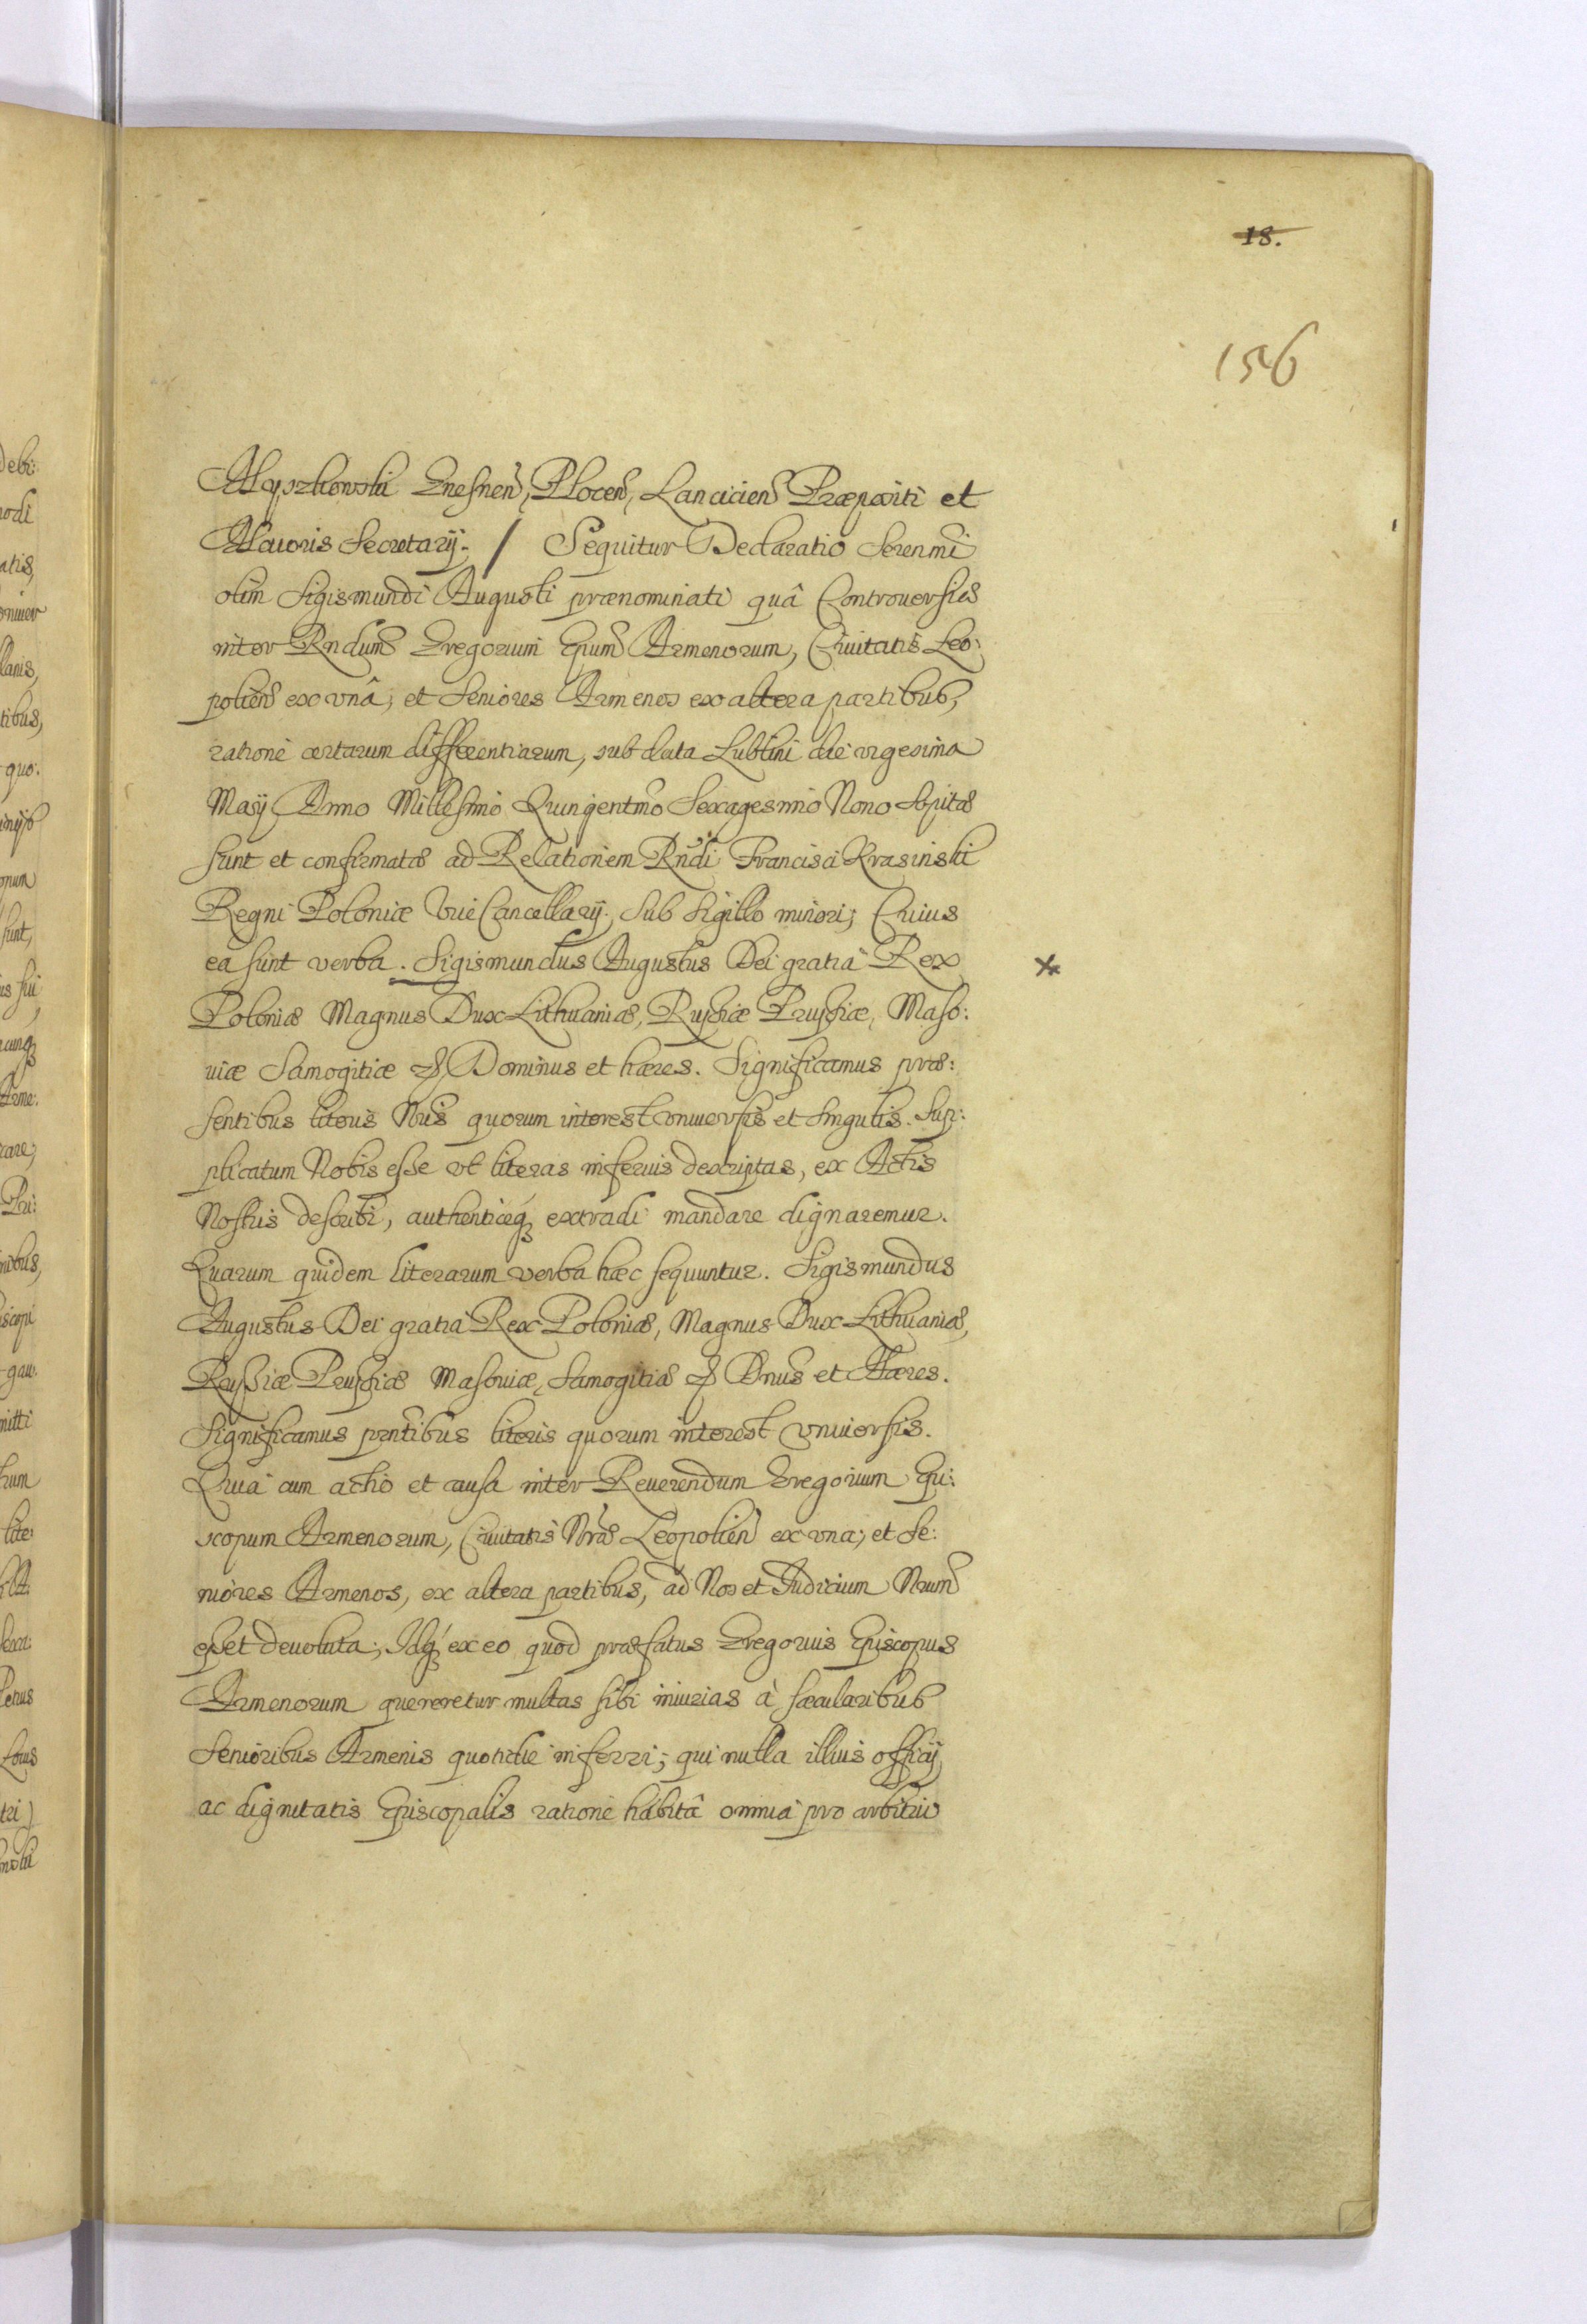 18.
156
Myszkowski Gnesnen̄, Plocen̄, Lancicien̄ Præpositi et
Maioris Secretarij. / Sequitur Declaratio Serenm̄i
olim Sigismundi Augusti prænominati quâ Controuersiæ
inter Rndum̄ Gregorium Ep̄um Armenorum, Ciuitatis Leo:
polien̄ ex vnâ; et Seniores Armenos ex altera partibus,
ratione certarum differentiarum, sub data Lublini die vigesima
Maij Anno Millesimo Quingentmo Sexagesimo Nono Sopitæ
sunt et confirmatæ ad Relationem Rn̄di Francisci Krasinski
Regni Poloniæ Vice Cancellarij. Sub Sigillo minori; Cuius
ea sunt verba. Sigismundus Augustus Dei gratia Rex
Poloniæ Magnus Dux Lithuaniæ, Russiæ Prussiæ, Maso:
uiæ Samogitiæ &c Dominus et hæres. Significamus præ:
sentibus literis Nr̄is quorum interest vniuersis et singulis. Sup:
plicatum Nobis esse vt literas inferius descriptas, ex Actis
Nostris describi, authenticéq; extradi mandare dignaremur.
Quarum quidem literarum verba hæc sequuntur. Sigismundus
Augustus Dei gratia Rex Poloniæ, Magnus Dux Lithuaniæ,
Russiæ Prussiæ Masouiæ, Samogitiæ &c Dnus̄ et Hæres.
Significamus prn̄tibus literis quorum interest vniuersis.
Quia cum actio et causa inter Reuerendum Gregorium Epi:
scopum Armenorum, Ciuitatis Nr̄æ Leopolien̄ ex vna; et Se:
niores Armenos, ex altera partibus, ad Nos et Iudicium Nrum̄
esset deuoluta; Idq́; ex eo quod præfatus Gregorius Episcopus
Armenorum quereretur multas sibi iniurias à sæcularibus
Senioribus Armenis quotidie inferri; qui nulla illius officij
ac dignitatis Episcopalis ratione habitâ omnia pro arbitrio